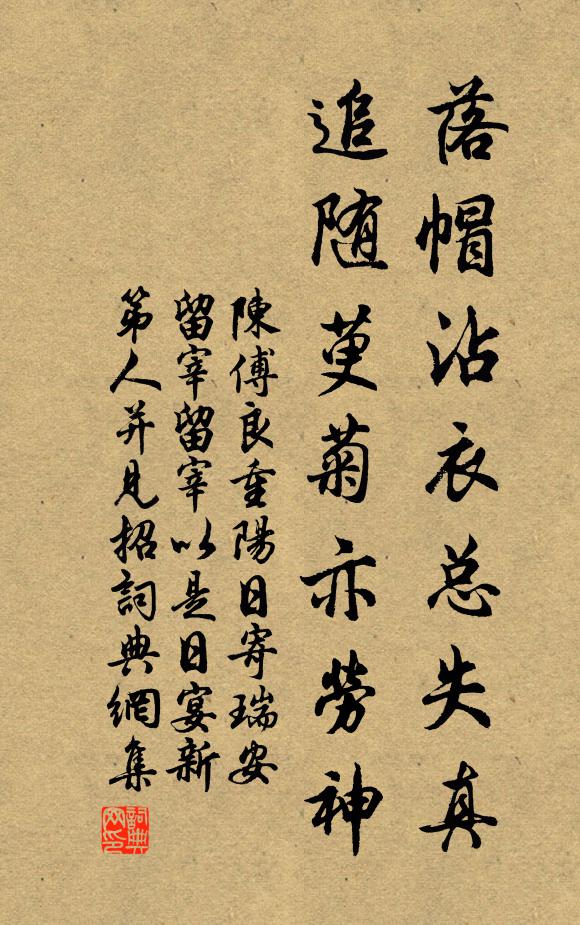 落帽沾衣总失真
追随萸菊亦勞神
陳傅良重陽日寄瑞安
留宰留宰以是日宴新
第人并見招詞典網集
詞典
网印